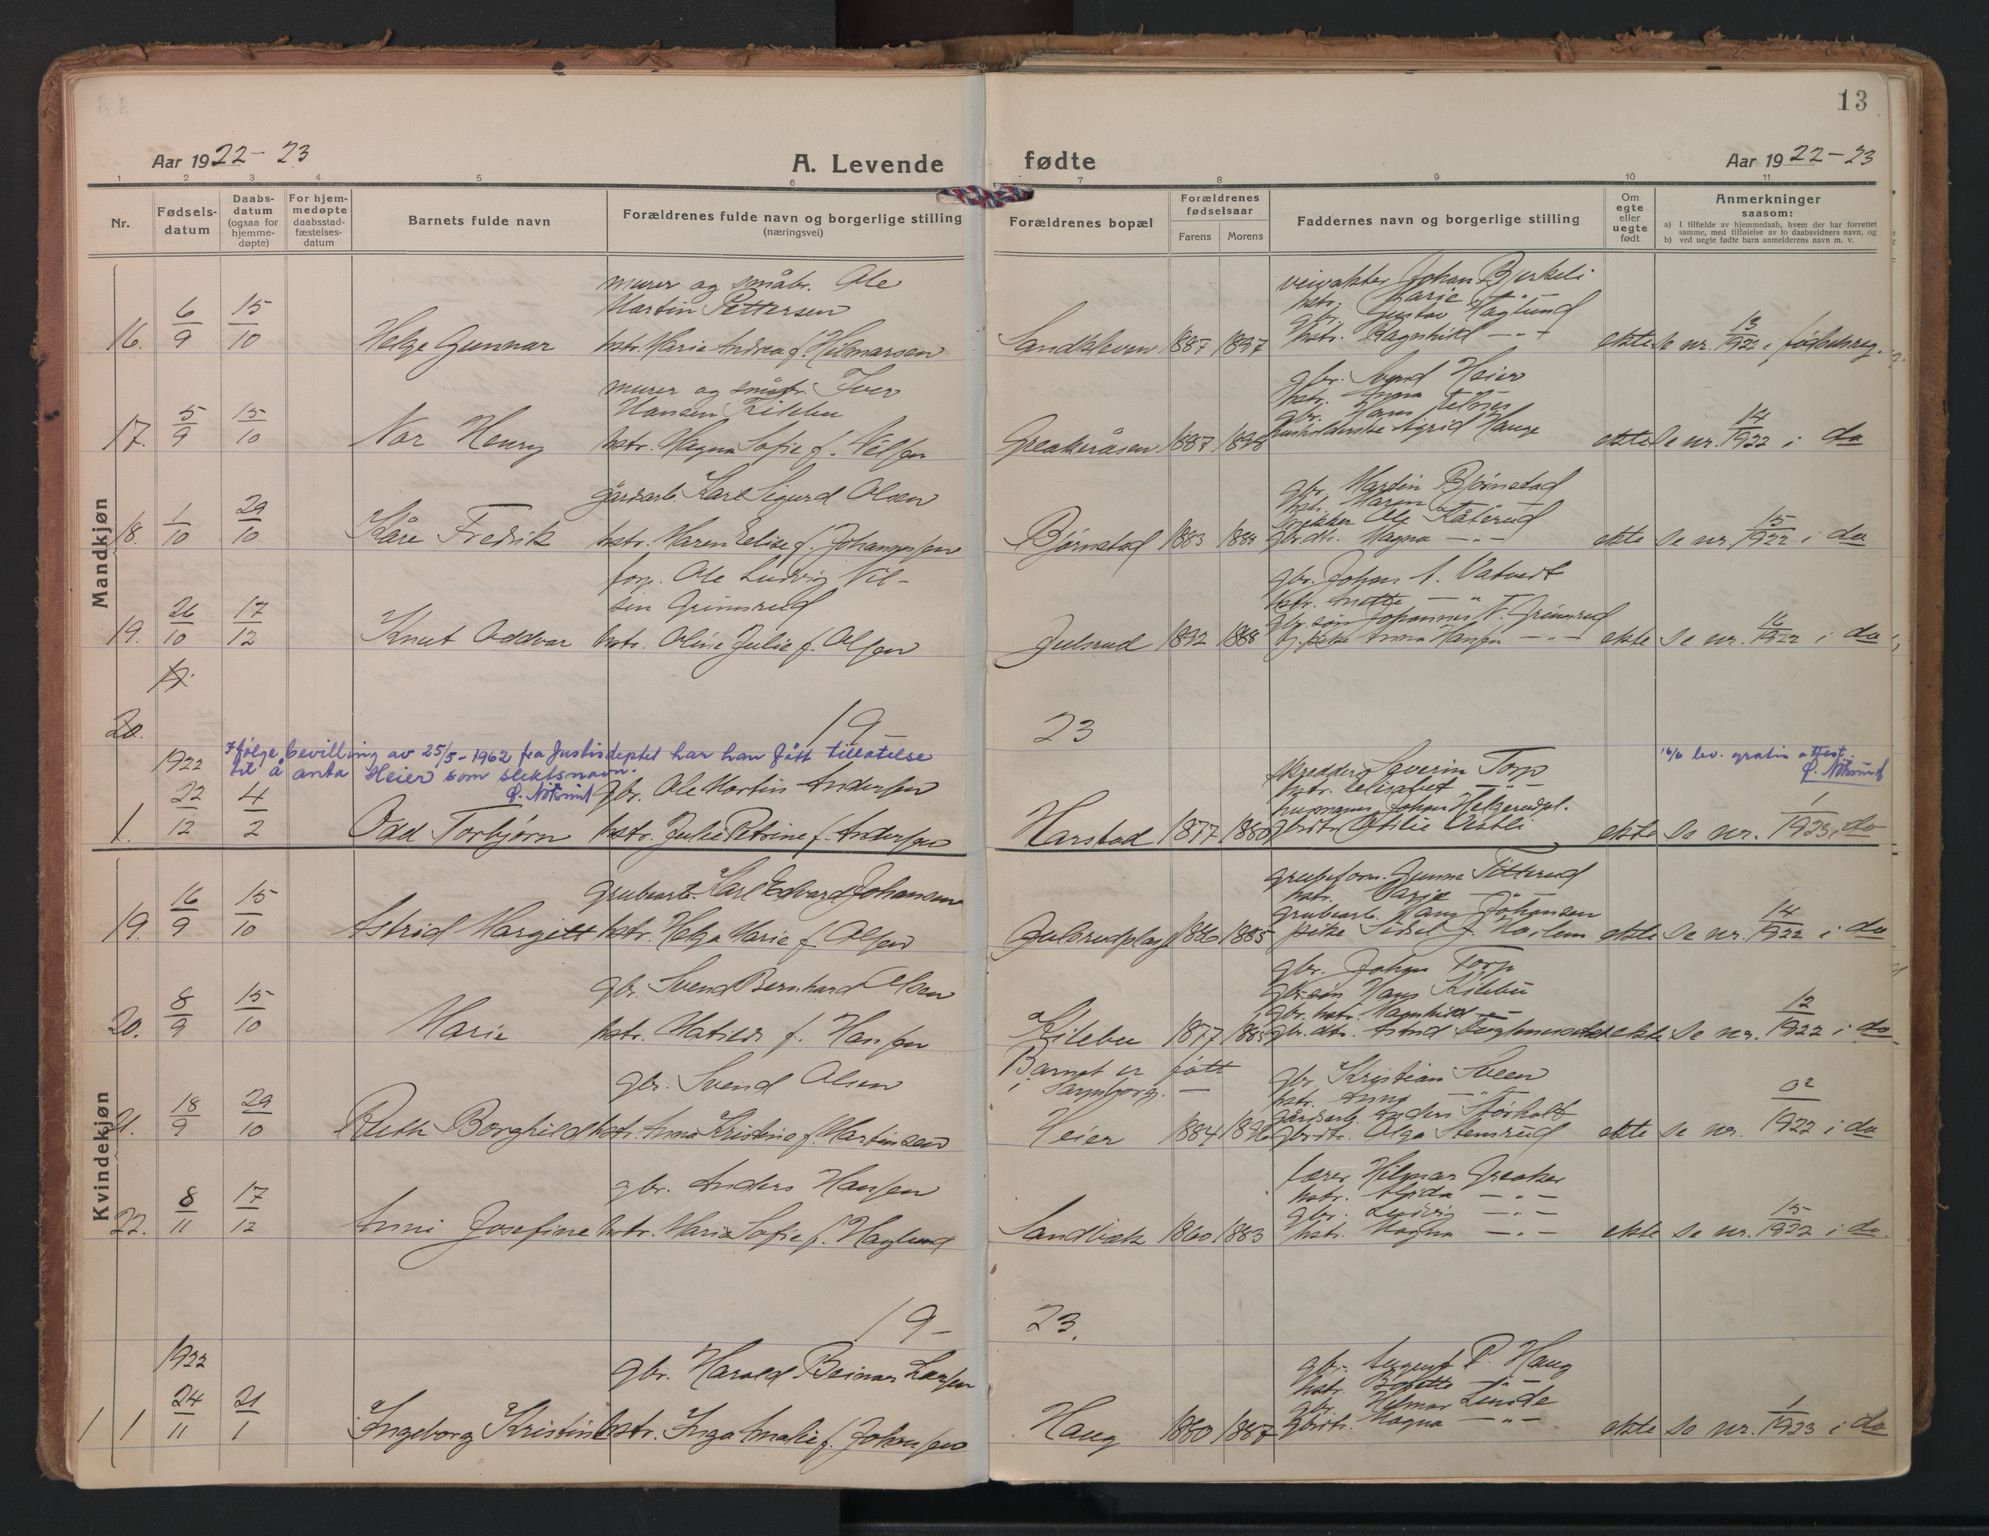 13
Aar 1922-23
A. Levende
fødte
Aar 1922-23
1 2 3 4 5 6 7 8 9 10 11
Nr.
Fødsels-
datum
Daabs-
datum
(ogsaa for
hjemme-
døpte)
For hjem-
medøpte
daabsstad-
fæstelses-
datum
Barnets fulde navn
Forældrenes fulde navn og borgerlige stilling
(næringsvei)
Forældrenes bopæl
Forældrenes
fødselsaar
Farens
Morens
Faddernes navn og borgerlige stilling
Om
egte
eller
uegte
født
Anmerkninger
saasom:
a) I tilfælde av hjemmedaab, hvem der har forrettet
samme, med tilføielse av to daabsvidners navn, og
b) ved uegte fødte barn anmelderens navn m. v.
Mandkjøn
murer og småbr. Ole
Martin Pettersen
16. 6/9 15/10 Helge Gunnar hstr. Marie Andrea f. Hilmarsen
1887 1897
veivakter Johan Bjerkeli
hstr. Marie
gbr. Gustav Haglund
hstr. Ragnhild -"-
ekte Se nr. 13/1922 i fødselsreg.
murer og småbr. Iver
Hansen Kilebu
17. 5/9 15/10 Nor Henry hstr. Magna Sofie f. Nilsen
Greakeråsen 1887
gbr. Svend Heier
hstr. Anna
gbr. Hans
Astrid Hauge
ekte Se nr. 14/1922 i do
gårdsarb. Karl Sigurd Olsen
18. 1/10 29/10 Kåre Fredrik hstr. Maren Elise f. Johannessen
Bjørnstad 1883 1888
gbr. Martin Bjørnstad
hstr. Maren
Ole Kåterud
gbrdtr. Magna -"-
ekte Se nr. 15/1922 i do
forp. Ole Ludvig Nil-
sen Grimsrud
19. 26/10 17/12 Knut Oddvar hstr. Oline Julie f. Olsen
Julsrud 1892 1888
gbr. Johan A. Vatvedt
hstr. Anette -"-
gbr. søn Johannes N. Grimsrud
pike Anna Hansen -"-
ekte Se nr. 16/1922 i do
20.
19 23
1922 Ifølge bevilling av 25/5-1962 fra Justisdeptet har han fått tillatelse
til å anta Heier som slektsnavn.
16/6 lev. gratis attest.
gbr. Ole Martin Andersen
1. 22/12 4/2 Odd Torbjørn hstr. Julie Petrine f. Andersen
Harstad 1877 1880
skredder Severin Torp
hstr. Elisabet -"-
husmann Johan Helgerudpl.
gbrdtr. Otilie Østli
ekte Se nr. 1/1923 i do
Kvindekjøn
grubearb. Karl Edvard Johansen
19. 16/9 15/10 Astrid Margitt hstr. Helga Marie f. Olsen
Julsrudplass 1886 1885
grubeform. Gunnar Titterud
hstr. Marie
grubearb. Hans Johansen
pike Sidsel J. Harlem
ekte Se nr. 14/1922 i do
gbr. Svend Bernhard Olsen
20. 8/9 15/10 Marie hstr. Matilde f. Hansen
Kilebu 1877
gbr. Johan Torp
gbr. søn Hans Kilebu
gbr. hstr. Magnhild -"-
gbr. dtr. Astrid
ekte Se nr. 12/1922 i do
Barnet er født
i Sarpsborg. -
gbr. Svend Olsen
21. 18/9 29/10 Ruth Borghild hstr. Anna Kristine f. Martinsen
Heier 1884 1896
gbr. Kristian Sveen
hstr. Anna -"-
gårdsarb. Anders Storholt
gbrdtr. Olga Stemsrud
ekte Se nr. 1922 i do
gbr. Anders Hansen
22. 8/11 17/12 Anni Josefine hstr. Maria Sofie f. Haglund
Sandbæk 1860 1883
lærer Hilmar Greaker
hstr. Alfida -"-
gbr. Ludvig -"-
hstr. Magna -"-
ekte Se nr. 15/1922 i do.
19- 23.
1922
gbr. Harald Beinar Larsen
1 1 24/11 21/1 Ingeborg Kristine hstr. Inga Amalie f. Johansen
Haug 1880 1887
gbr. August P. Haug
hstr. Bolette -"-
gbr. Hilmar Linde
gbrdtr. Magna -"-
ekte Se nr. 1/1923 i do